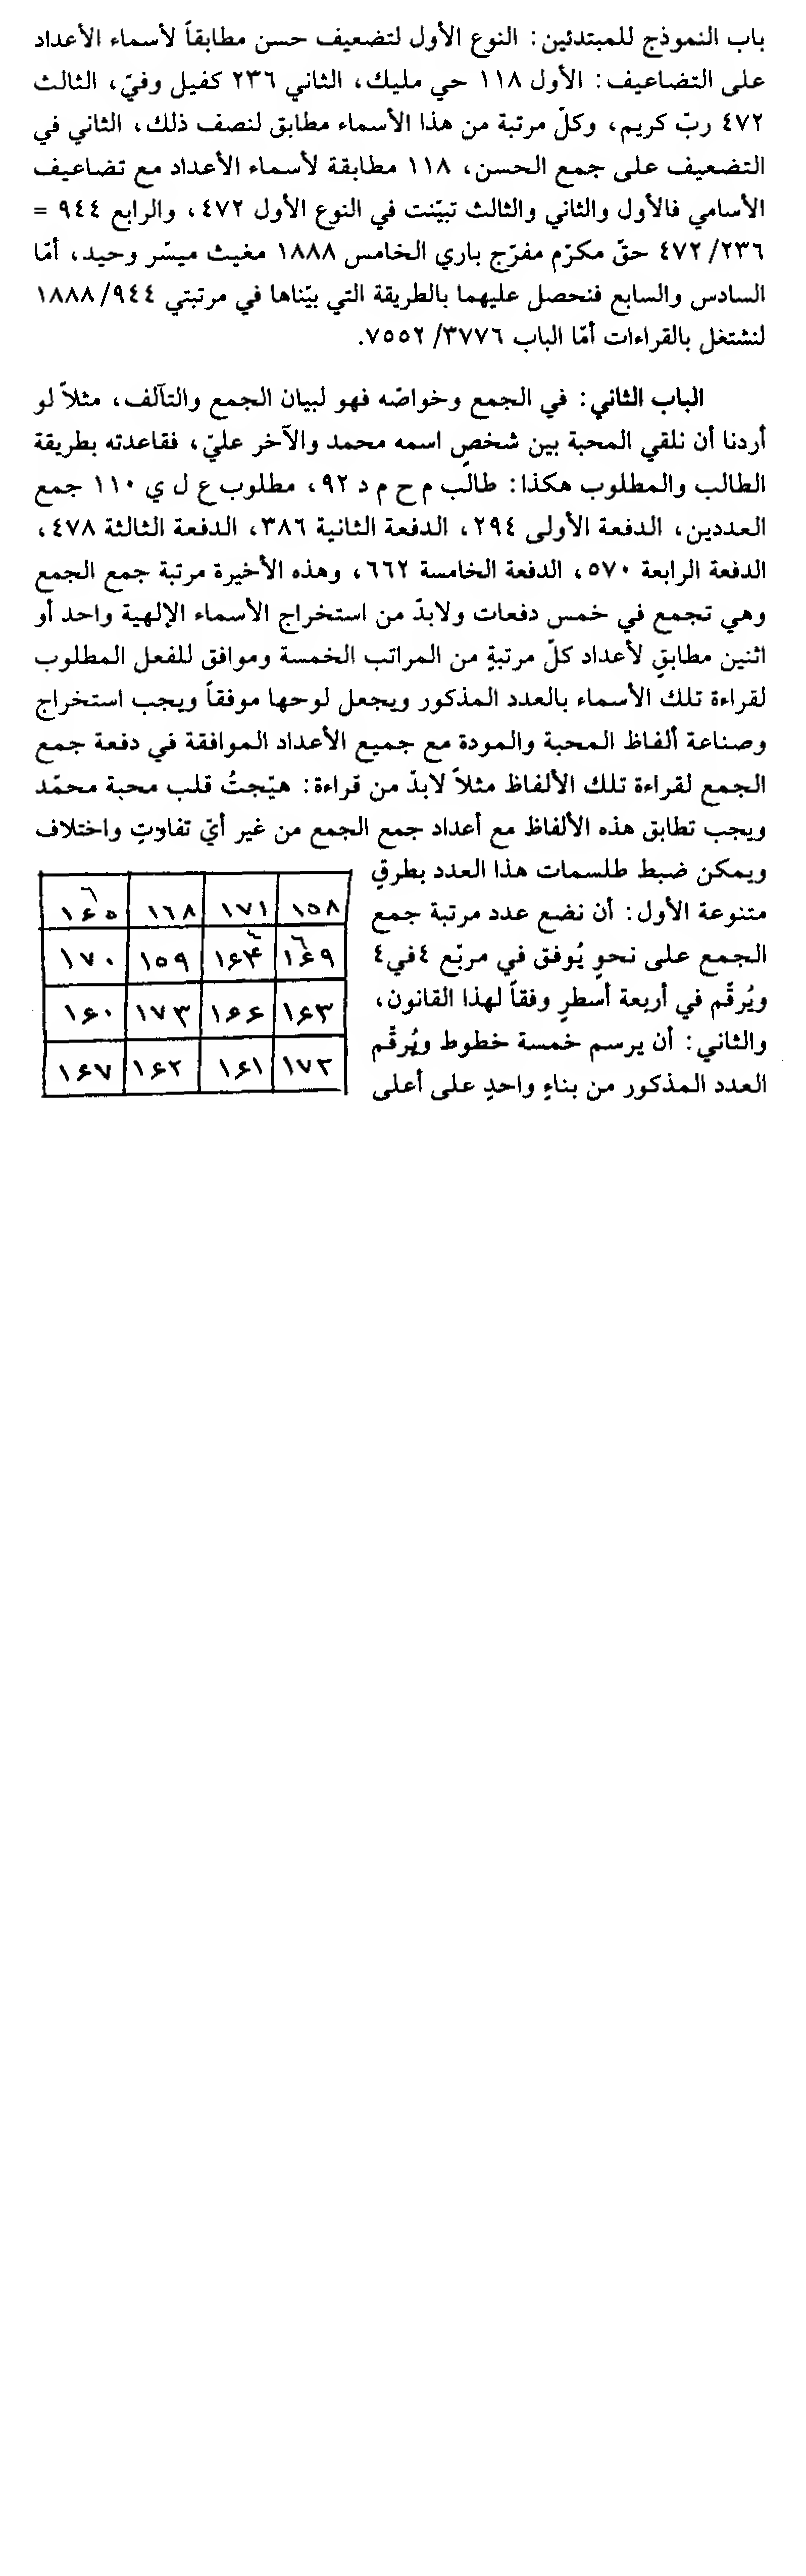 باب النموذج للمبتدئين: النوع الأول لتضعيف حسن مطابقاً لأسماء الأعداد
على التضاعيف: الأول ١١٨ حي مليك، الثاني ٢٣٦ كفيل وفيّ، الثالث
٤٧٢ ربّ كريم، وكلّ مرتبة من هذا الأسماء مطابق لنصف ذلك، الثاني في
التضعيف على جمع الحسن، ١١٨ مطابقة لأسماء الأعداد مع تضاعيف
الأسامي فالأول والثاني والثالث تبيّنت في النوع الأول ٤٧٢، والرابع ٩٤٤ =
٢٣٦/ ٤٧٢ حقّ مكرّم مفرّج باري الخامس ١٨٨٨ مغيث ميسّر وحيد، أمّا
السادس والسابع فنحصل عليهما بالطريقة التي بيّناها في مرتبتي ٩٤٤/ ١٨٨٨
لنشتغل بالقراءات أمّا الباب ٣٧٧٦/ ٧٥٥٢.
الباب الثاني: في الجمع وخواصّه فهو لبيان الجمع والتآلف، مثلاً لو
أردنا أن نلقي المحبة بين شخصٍ اسمه محمد والآخر عليّ، فقاعدته بطريقة
الطالب والمطلوب هكذا: طالب م ح م د ٩٢، مطلوب ع ل ي ١١٠ جمع
العددين، الدفعة الأولى ٢٩٤، الدفعة الثانية ٣٨٦، الدفعة الثالثة ٤٧٨،
الدفعة الرابعة ٥٧٠، الدفعة الخامسة ٦٦٢، وهذه الأخيرة مرتبة جمع الجمع
وهي تجمع في خمس دفعات ولابدّ من استخراج الأسماء الإلهية واحد أو
اثنين مطابقٍ لأعداد كلّ مرتبةٍ من المراتب الخمسة وموافق للفعل المطلوب
لقراءة تلك الأسماء بالعدد المذكور ويجعل لوحها موفقاً ويجب استخراج
وصناعة ألفاظ المحبة والمودة مع جميع الأعداد الموافقة في دفعة جمع
الجمع لقراءة تلك الألفاظ مثلاً لابدّ من قراءة: هيّجتُ قلب محبة محمّد
ويجب تطابق هذه الألفاظ مع أعداد جمع الجمع من غير أيّ تفاوتٍ واختلاف
ويمكن ضبط طلسمات هذا العدد بطرقٍ
متنوعة الأول: أن نضع عدد مرتبة جمع
الجمع على نحوٍ يُوفق في مربّع ٤في٤
ويُرقّم في أربعة أسطرٍ وفقاً لهذا القانون،
والثاني: أن يرسم خمسة خطوط ويُرقّم
العدد المذكور من بناءٍ واحدٍ على أعلى
١٥٨ ١٧١ ١٦٨ ١۶٥
١۶٩ ١۶۴ ١٥٩ ١٧٠
١۶٣ ١۶۶ ١٧٣ ١۶٠
١٧٢ ١۶١ ١۶٢ ١۶٧